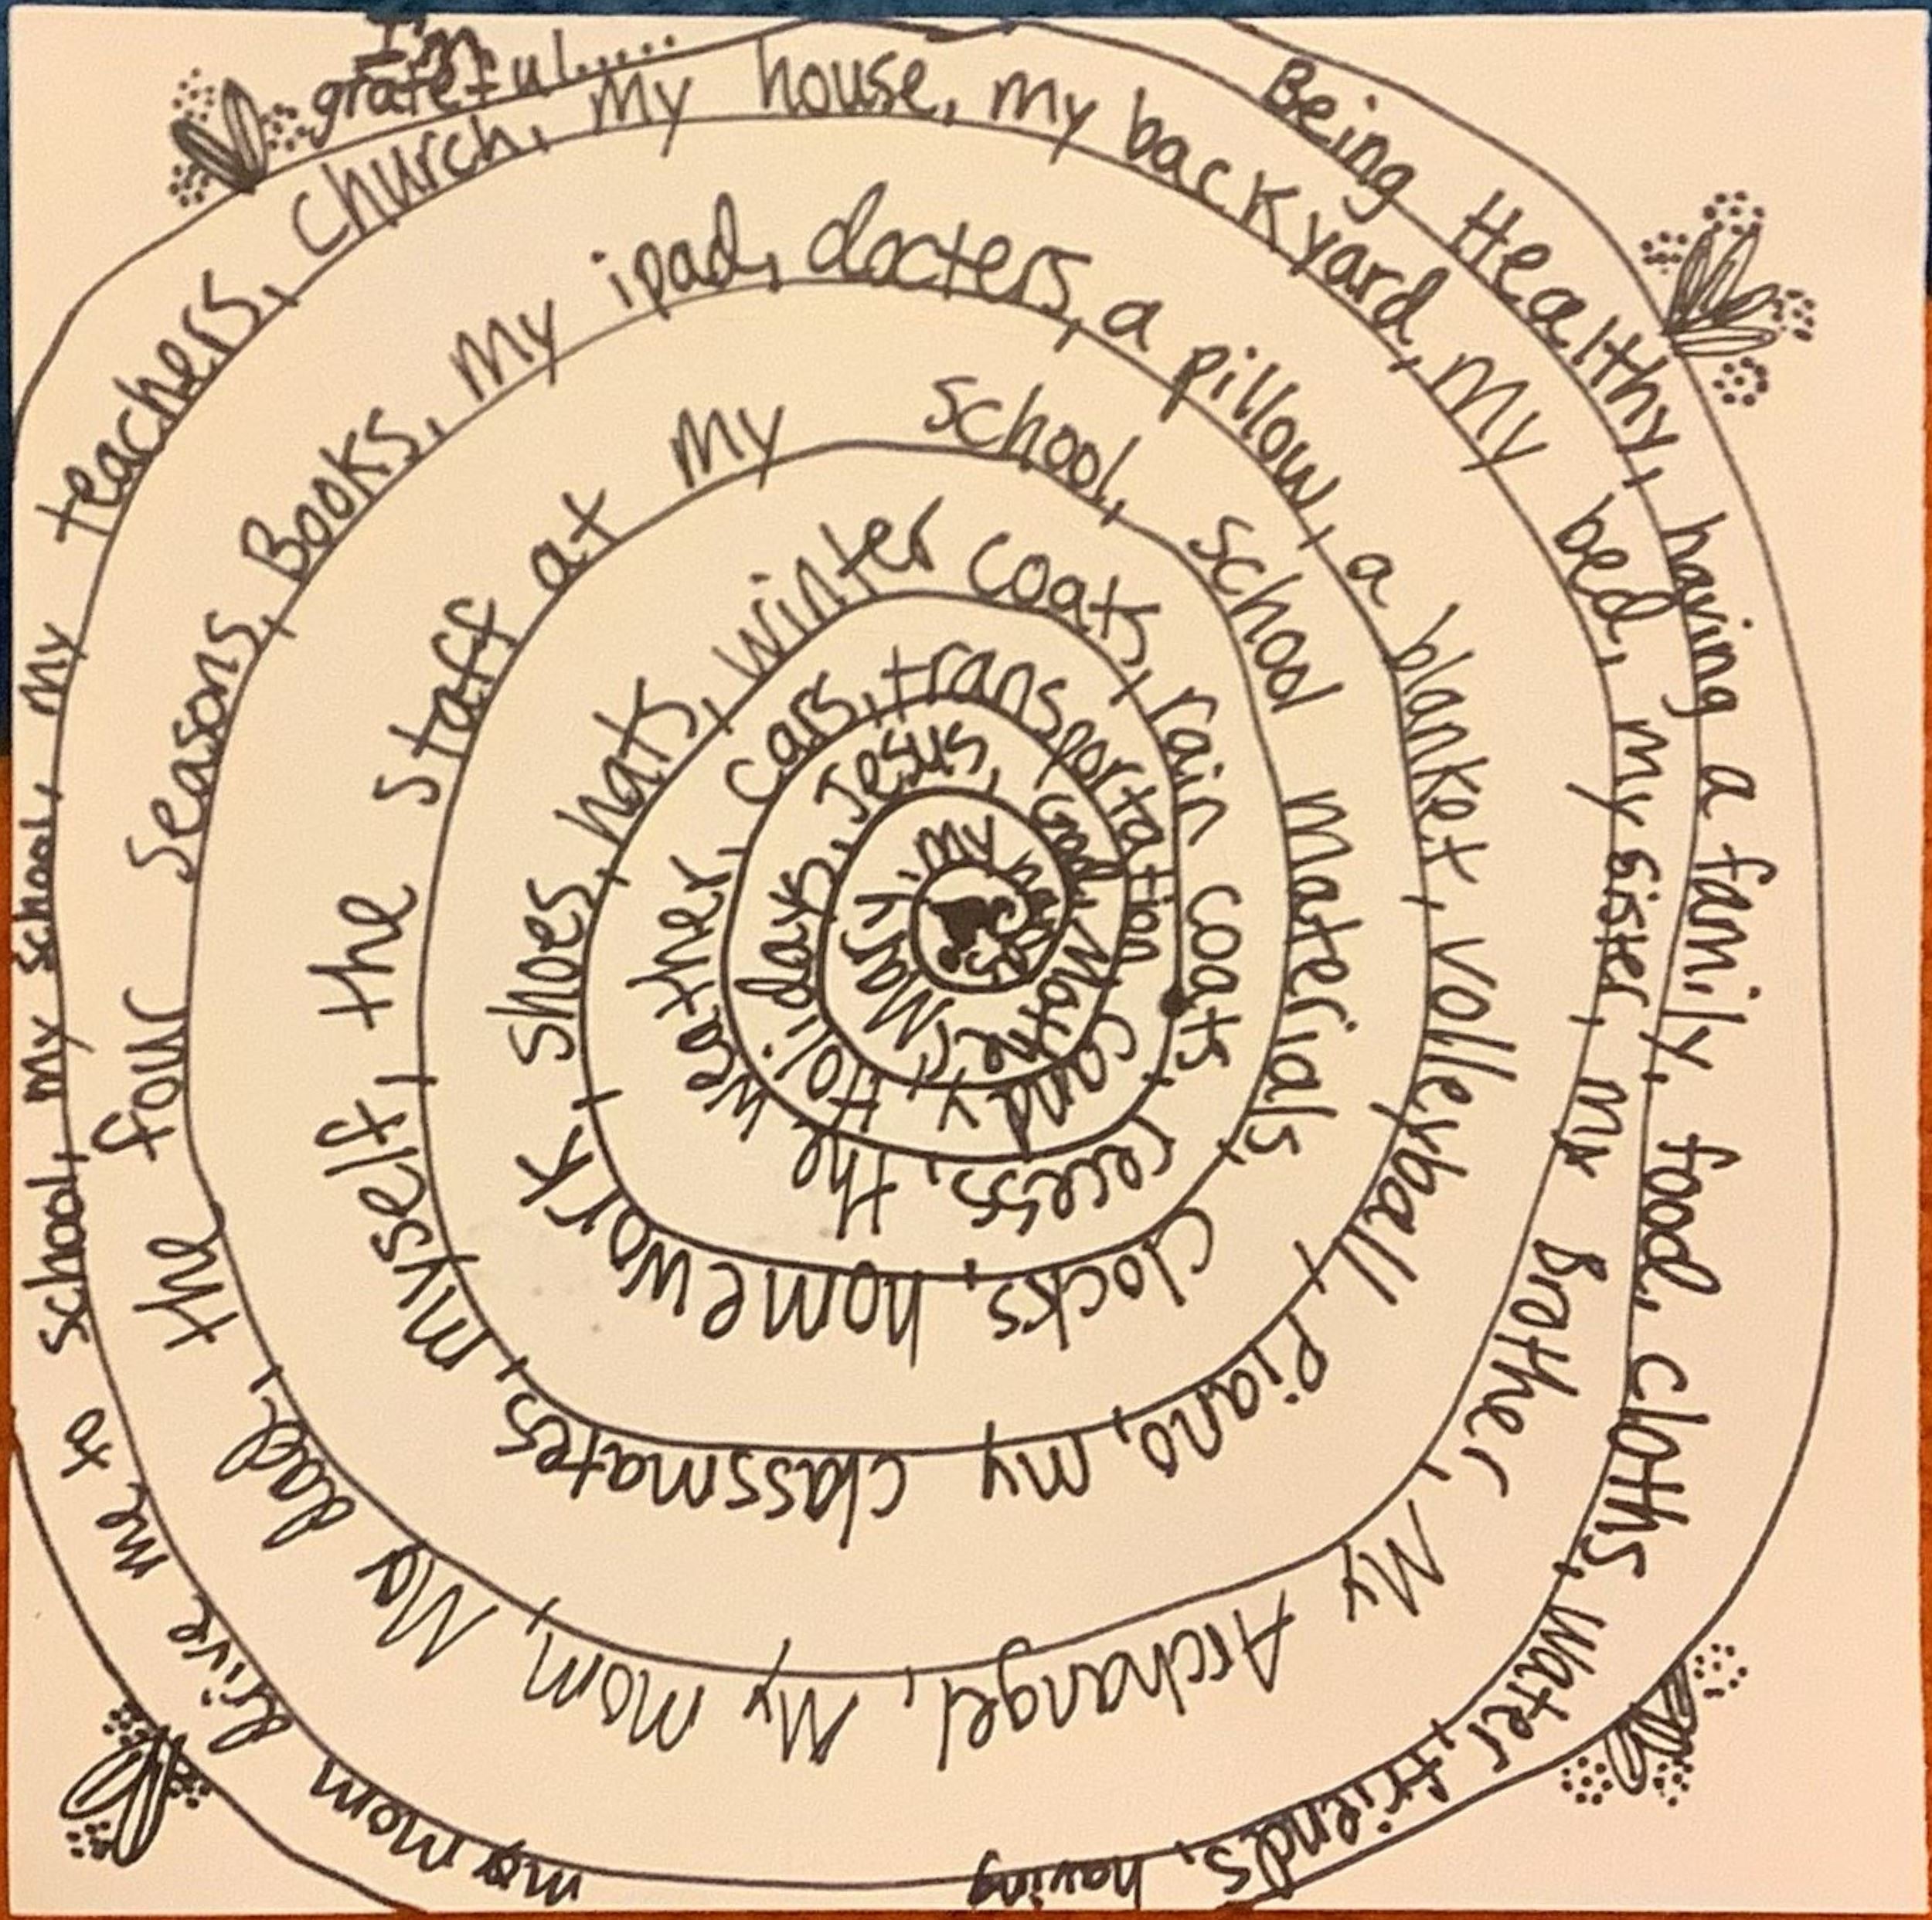 I'm grateful.....
Being Healthy, having a family, food, cloths, water, friends, having
my mom drive me to school, my school, my teachers, church, my house, my backyard, My bed, my sister, my Brother, My Archangel, My mom, My dad, the four seasons, Books, My ipad, docters, a pillow, a blanket, volleyball, Piano, my classmates, myself, the staff at my school, school materials, clocks, homework, shoes, hats, winter coats, rain coats, recess, the weather, cars, transportation, candy, Holidays, Jesus, God, Mother Mary, my